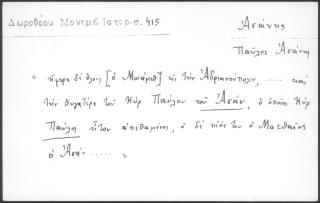 Δωροθέου Μονεμβ. Ιστορ. σ. 415
Ἀσάνης
Παῦλος Ἀσάνης
" ἤφερε δὲ ὅλους [ὁ Μουράτ] εἰς τὴν Ἀδριανούπολιν, ..... καὶ
τὴν θυγατέρα τοῦ Κὺρ Παύλου τοῦ Ἀσάν, ὁ ὁποῖος Κὺρ
Παῦλος ἦτον ἀπεθαμένος, ὁ δὲ υἱός του ὁ Ματθαῖος
ὁ Ἀσάν ..... "